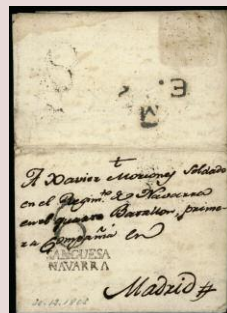 M. E.
A Xavier Moriones Soldado
en el Regim.to de Navarra
en el quarto Batallon, prime-
ra Compañia en
SANGUESA
NAVARRA
Madrid